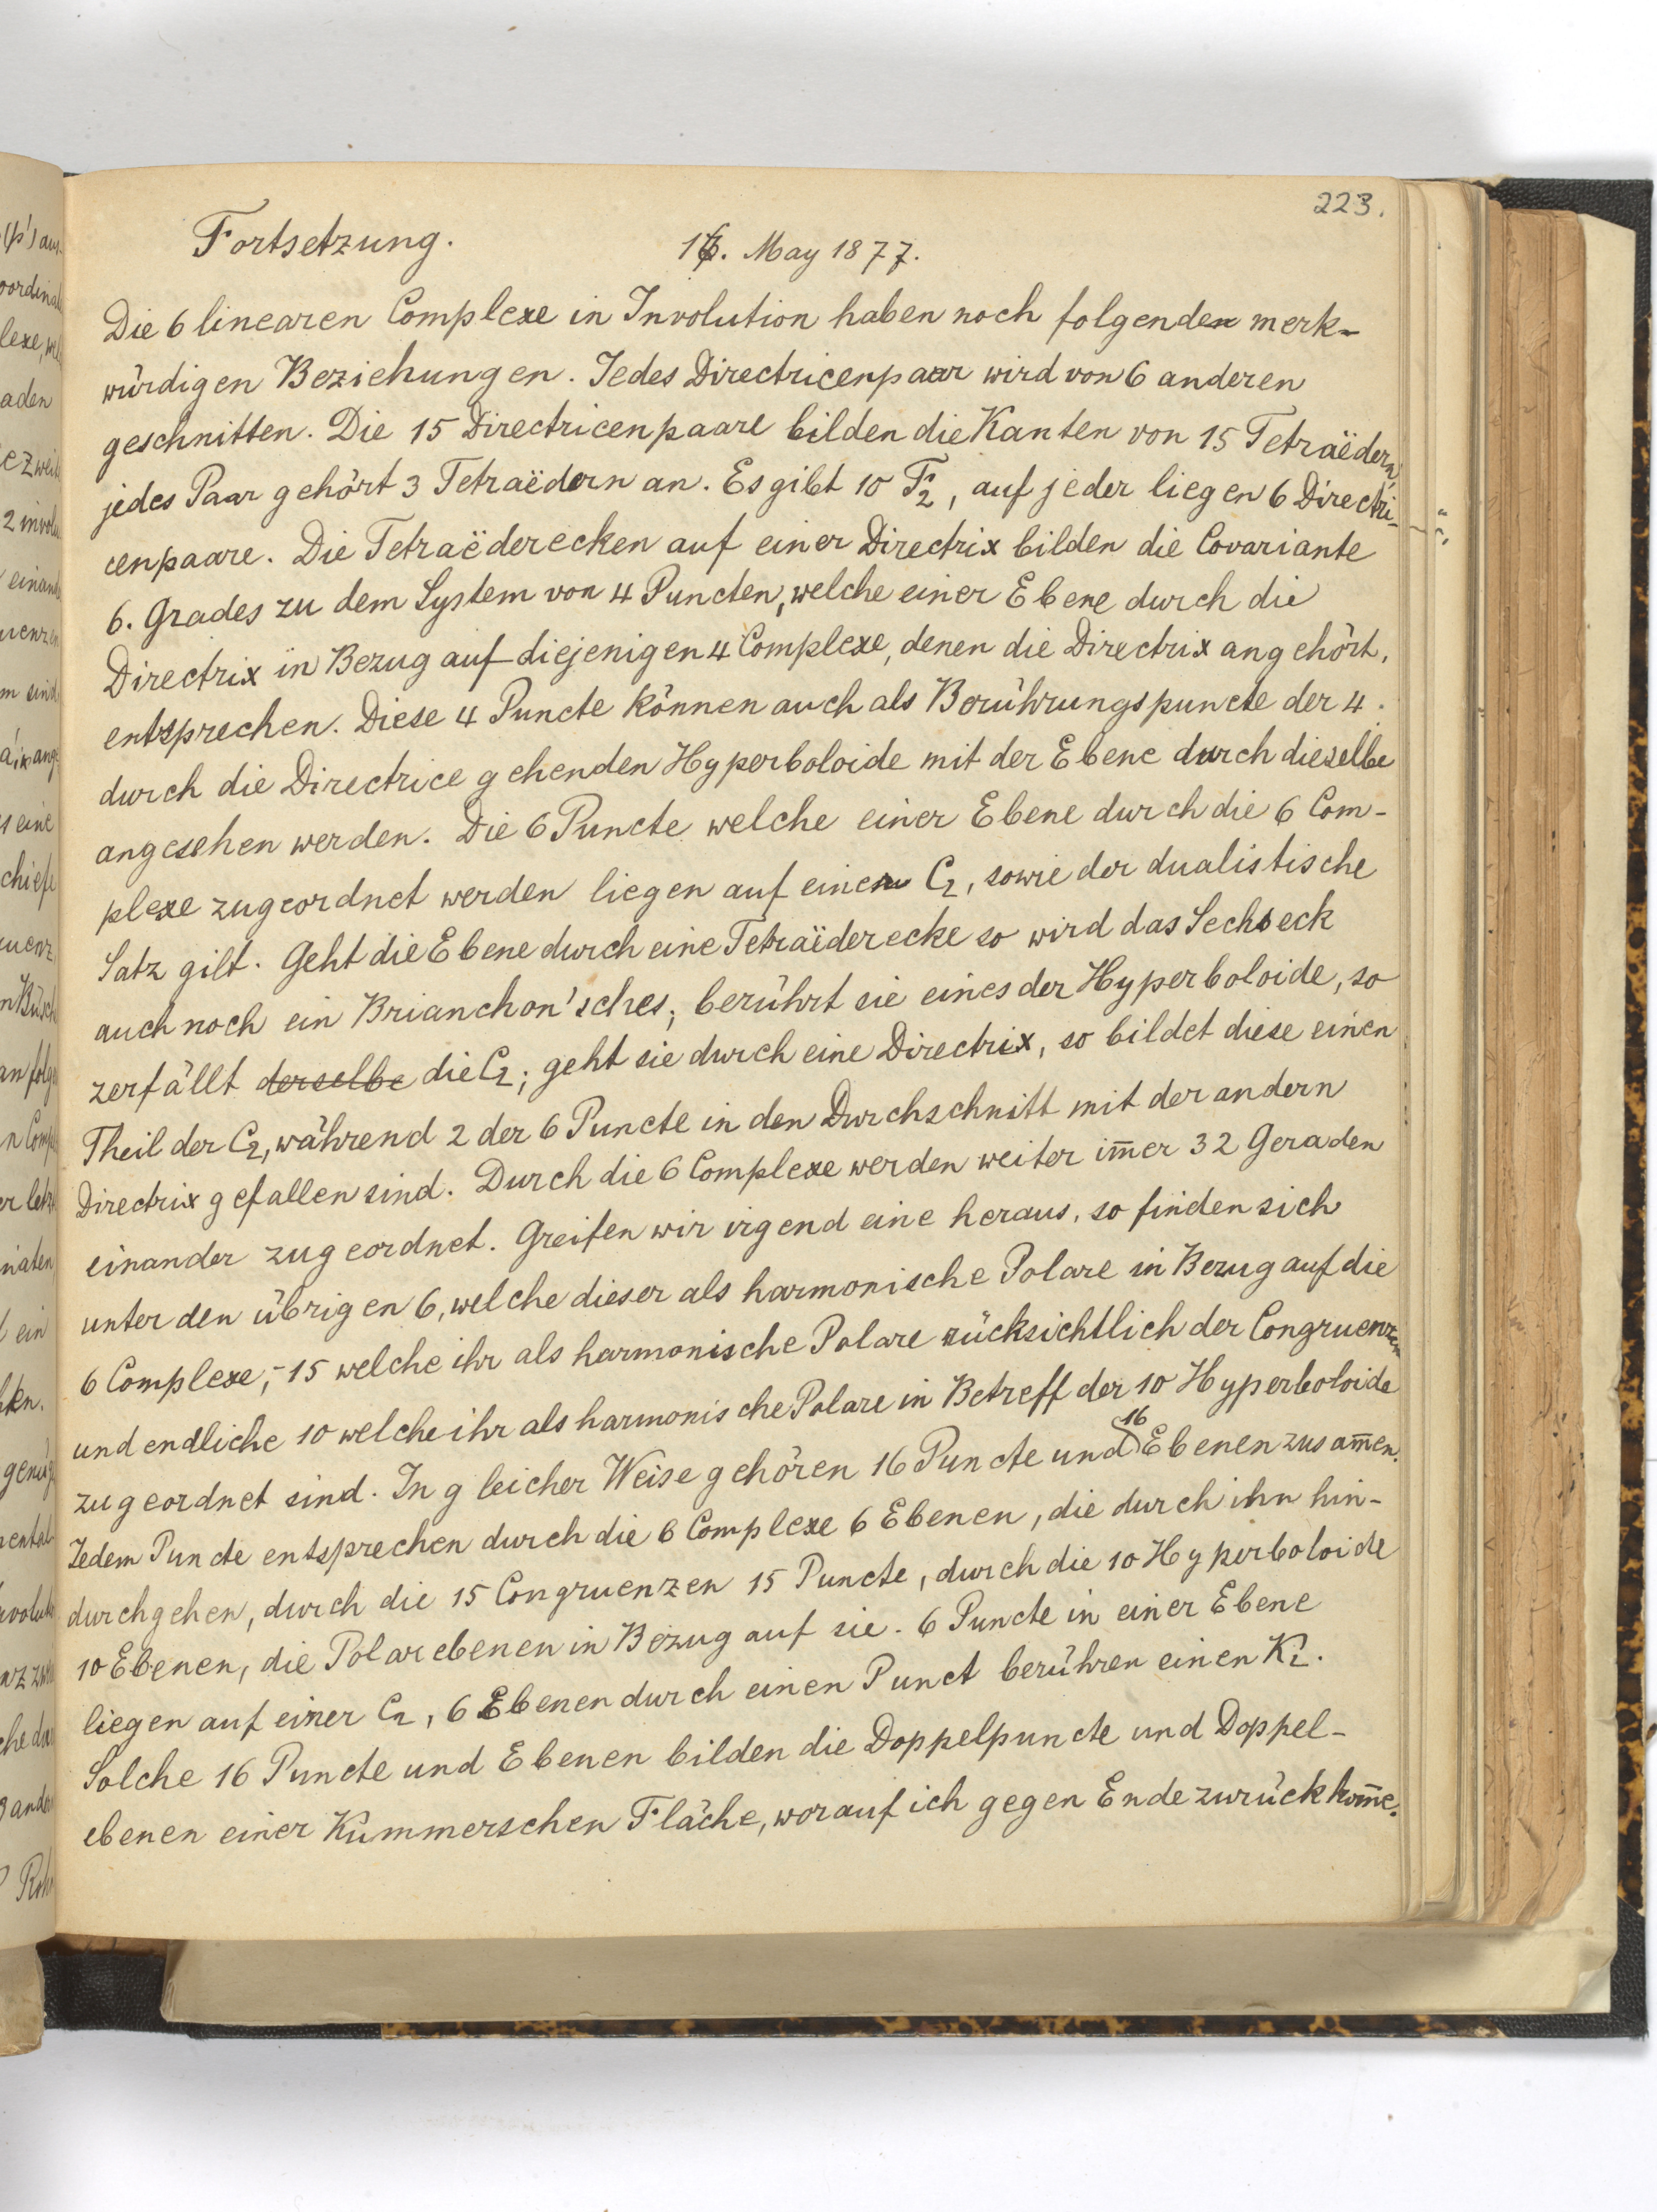 223.
Fortsetzung.
16. May 1877.
Die 6 linearen Complexe in Involution haben noch folgenden merk-
würdigen Beziehungen. Jedes Directricenpaar wird von 6 anderen
geschnitten. Die 15 Directricenpaare bilden die Kanten von 15 Tetraëdern,
jedes Paar gehört 3 Tetraëdern an. Es gibt 10 F₂, auf jeder liegen 6 Directri-
cenpaare. Die Tetraëderecken auf einer Directrix bilden die Covariante
6. Grades zu dem System von 4 Puncten, welche einer Ebene durch die
Directrix in Bezug auf diejenigen 4 Complexe, denen die Directrix angehört,
entsprechen. Diese 4 Puncte können auch als Berührungspuncte der 4
durch die Directrice gehenden Hyperboloide mit der Ebene durch dieselbe
angesehen werden. Die 6 Puncte welche einer Ebene durch die 6 Com-
plexe zugeordnet werden liegen auf einer C₂, sowie der dualistische
Satz gilt. Geht die Ebene durch eine Tetraëderecke so wird das Sechseck
auch noch ein Brianchon'sches; berührt sie eines der Hyperboloide, so
zerfällt derselbe die C₂; geht sie durch eine Directrix, so bildet diese einen
Theil der C₂, während 2 der 6 Puncte in den Durchschnitt mit der andern
Directrix gefallen sind. Durch die 6 Complexe werden weiter im̅er 32 Geraden
einander zugeordnet. Greifen wir irgend eine heraus, so finden sich
unter den übrigen 6, welche dieser als harmonische Polare in Bezug auf die
6 Complexe, - 15 welche ihr als harmonische Polare rücksichtlich der Congruenzen
und endliche 10 welche ihr als harmonische Polare in Betreff der 10 Hyperboloide
zugeordnet sind. In gleicher Weise gehören 16 Puncte und 16 Ebenen zusam̅en.
Jedem Puncte entsprechen durch die 6 Complexe 6 Ebenen, die durch ihn hin-
durchgehen, durch die 15 Congruenzen 15 Puncte, durch die 10 Hyperboloide
10 Ebenen, die Polarebenen in Bezug auf sie. 6 Puncte in einer Ebene
liegen auf einer C₂, 6 Ebenen durch einen Punct berühren einen K₂.
Solche 16 Puncte und Ebenen bilden die Doppelpuncte und Doppel-
ebenen einer Kummerschen Fläche, worauf ich gegen Ende zurückkom̅e.